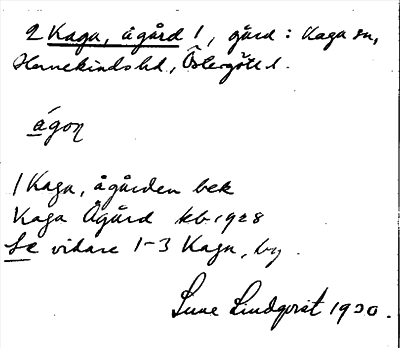 2 Kaga, ågård 1, gård: Kaga sn,
Hanekinds hd, Östergötl.
ágoɳ
1 Kaga, ågården bek
Kaga Ågård kb 1928
Se vidare 1-3 Kaga, by.
Sune Lindqvist 1930.